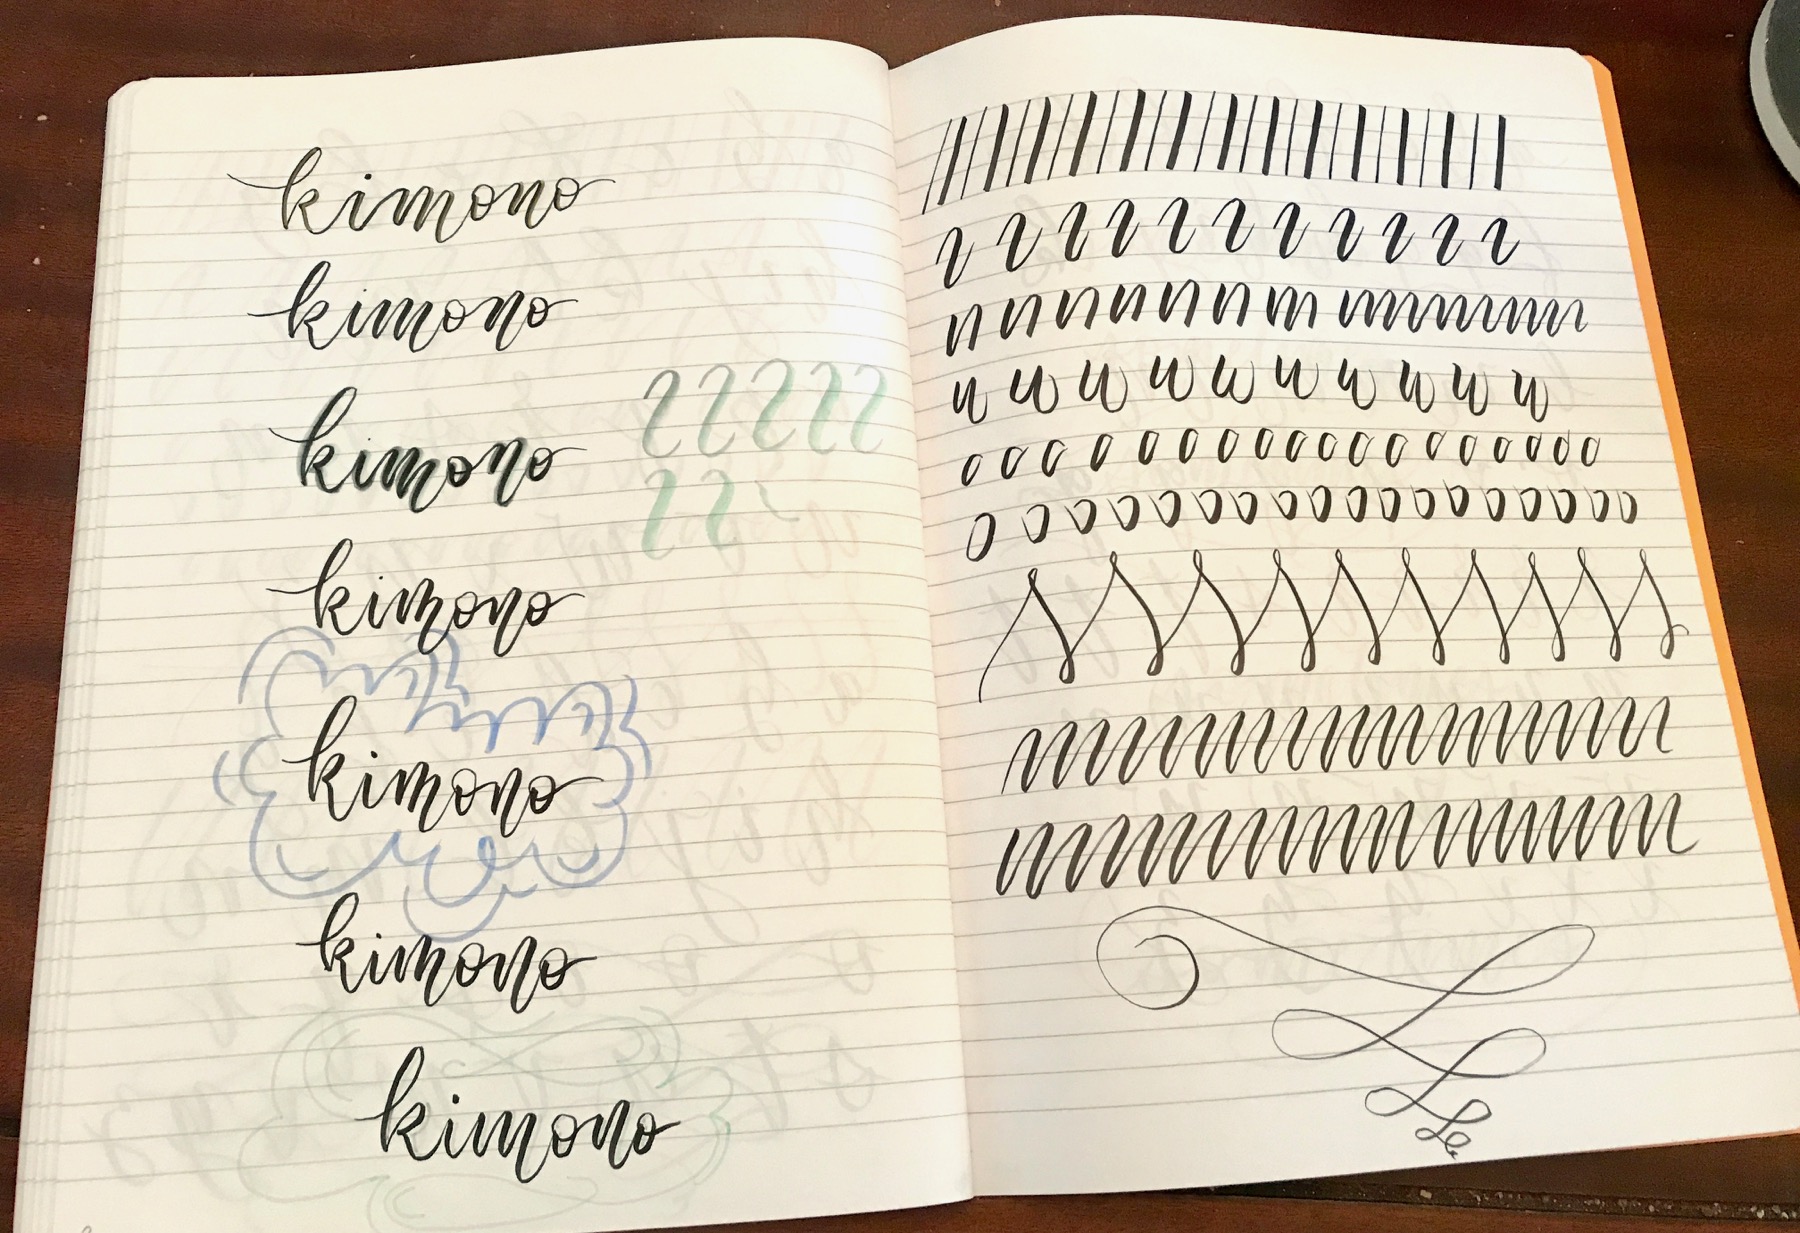 kimono
kimono
kimono
kimono
kimono
kimono
kimono